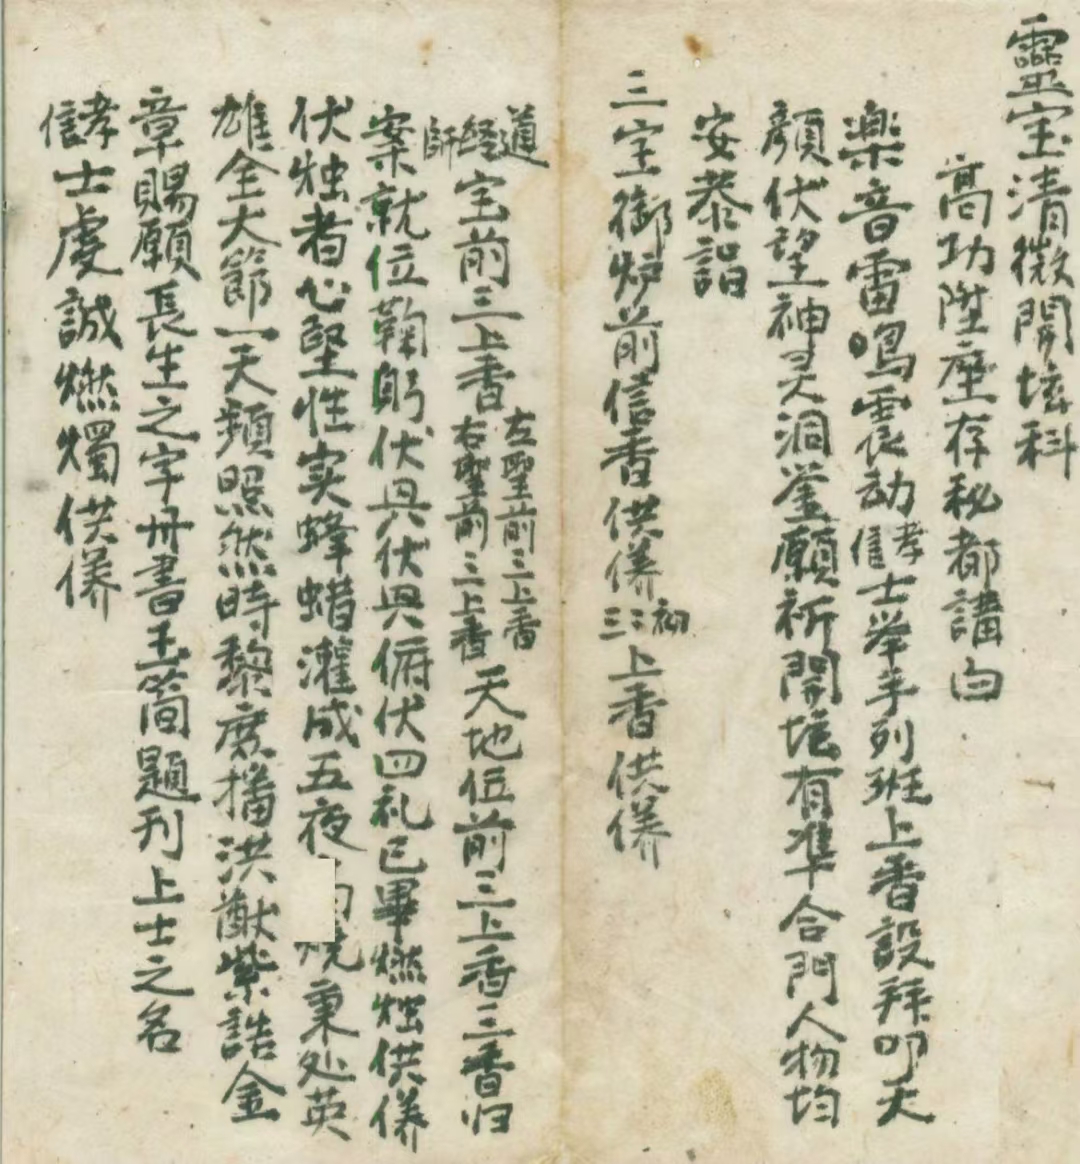 靈宝清微開坛科
高功陞座存秘都講白
楽音雷鳴震动孝信士举手列班上香設拜叩天
顏伏望神灵洞鉴願祈開坛有準合門人物均
安恭詣
三宝御炉前信香供养初二三上香供养
道経師宝前三上香左聖前三上香右聖前三上香天地位前三上香三香归
案就位鞠躬伏兴伏兴俯伏四礼已畢燃烛供养
伏烛者心堅性实蜂蜡灌成五夜 烧秉处英
雄全大節一天類照然時黎庶播洪猷紫誥金
章賜願長生之字丹書玉简題刊上士之名
孝信士虔誠燃燭供养